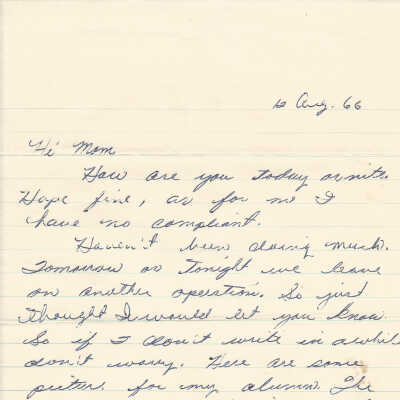 6 Aug. 66
Hi Mom
How are you today or nite.
Hope fine, as for me I
have no compliant.
Haven't been doing much.
Tomorrow or tonight we leave
on another operation. So just
thought I would let you know
So if I don't write in awhile
don't worry. Here are some
pictur. for my album. The